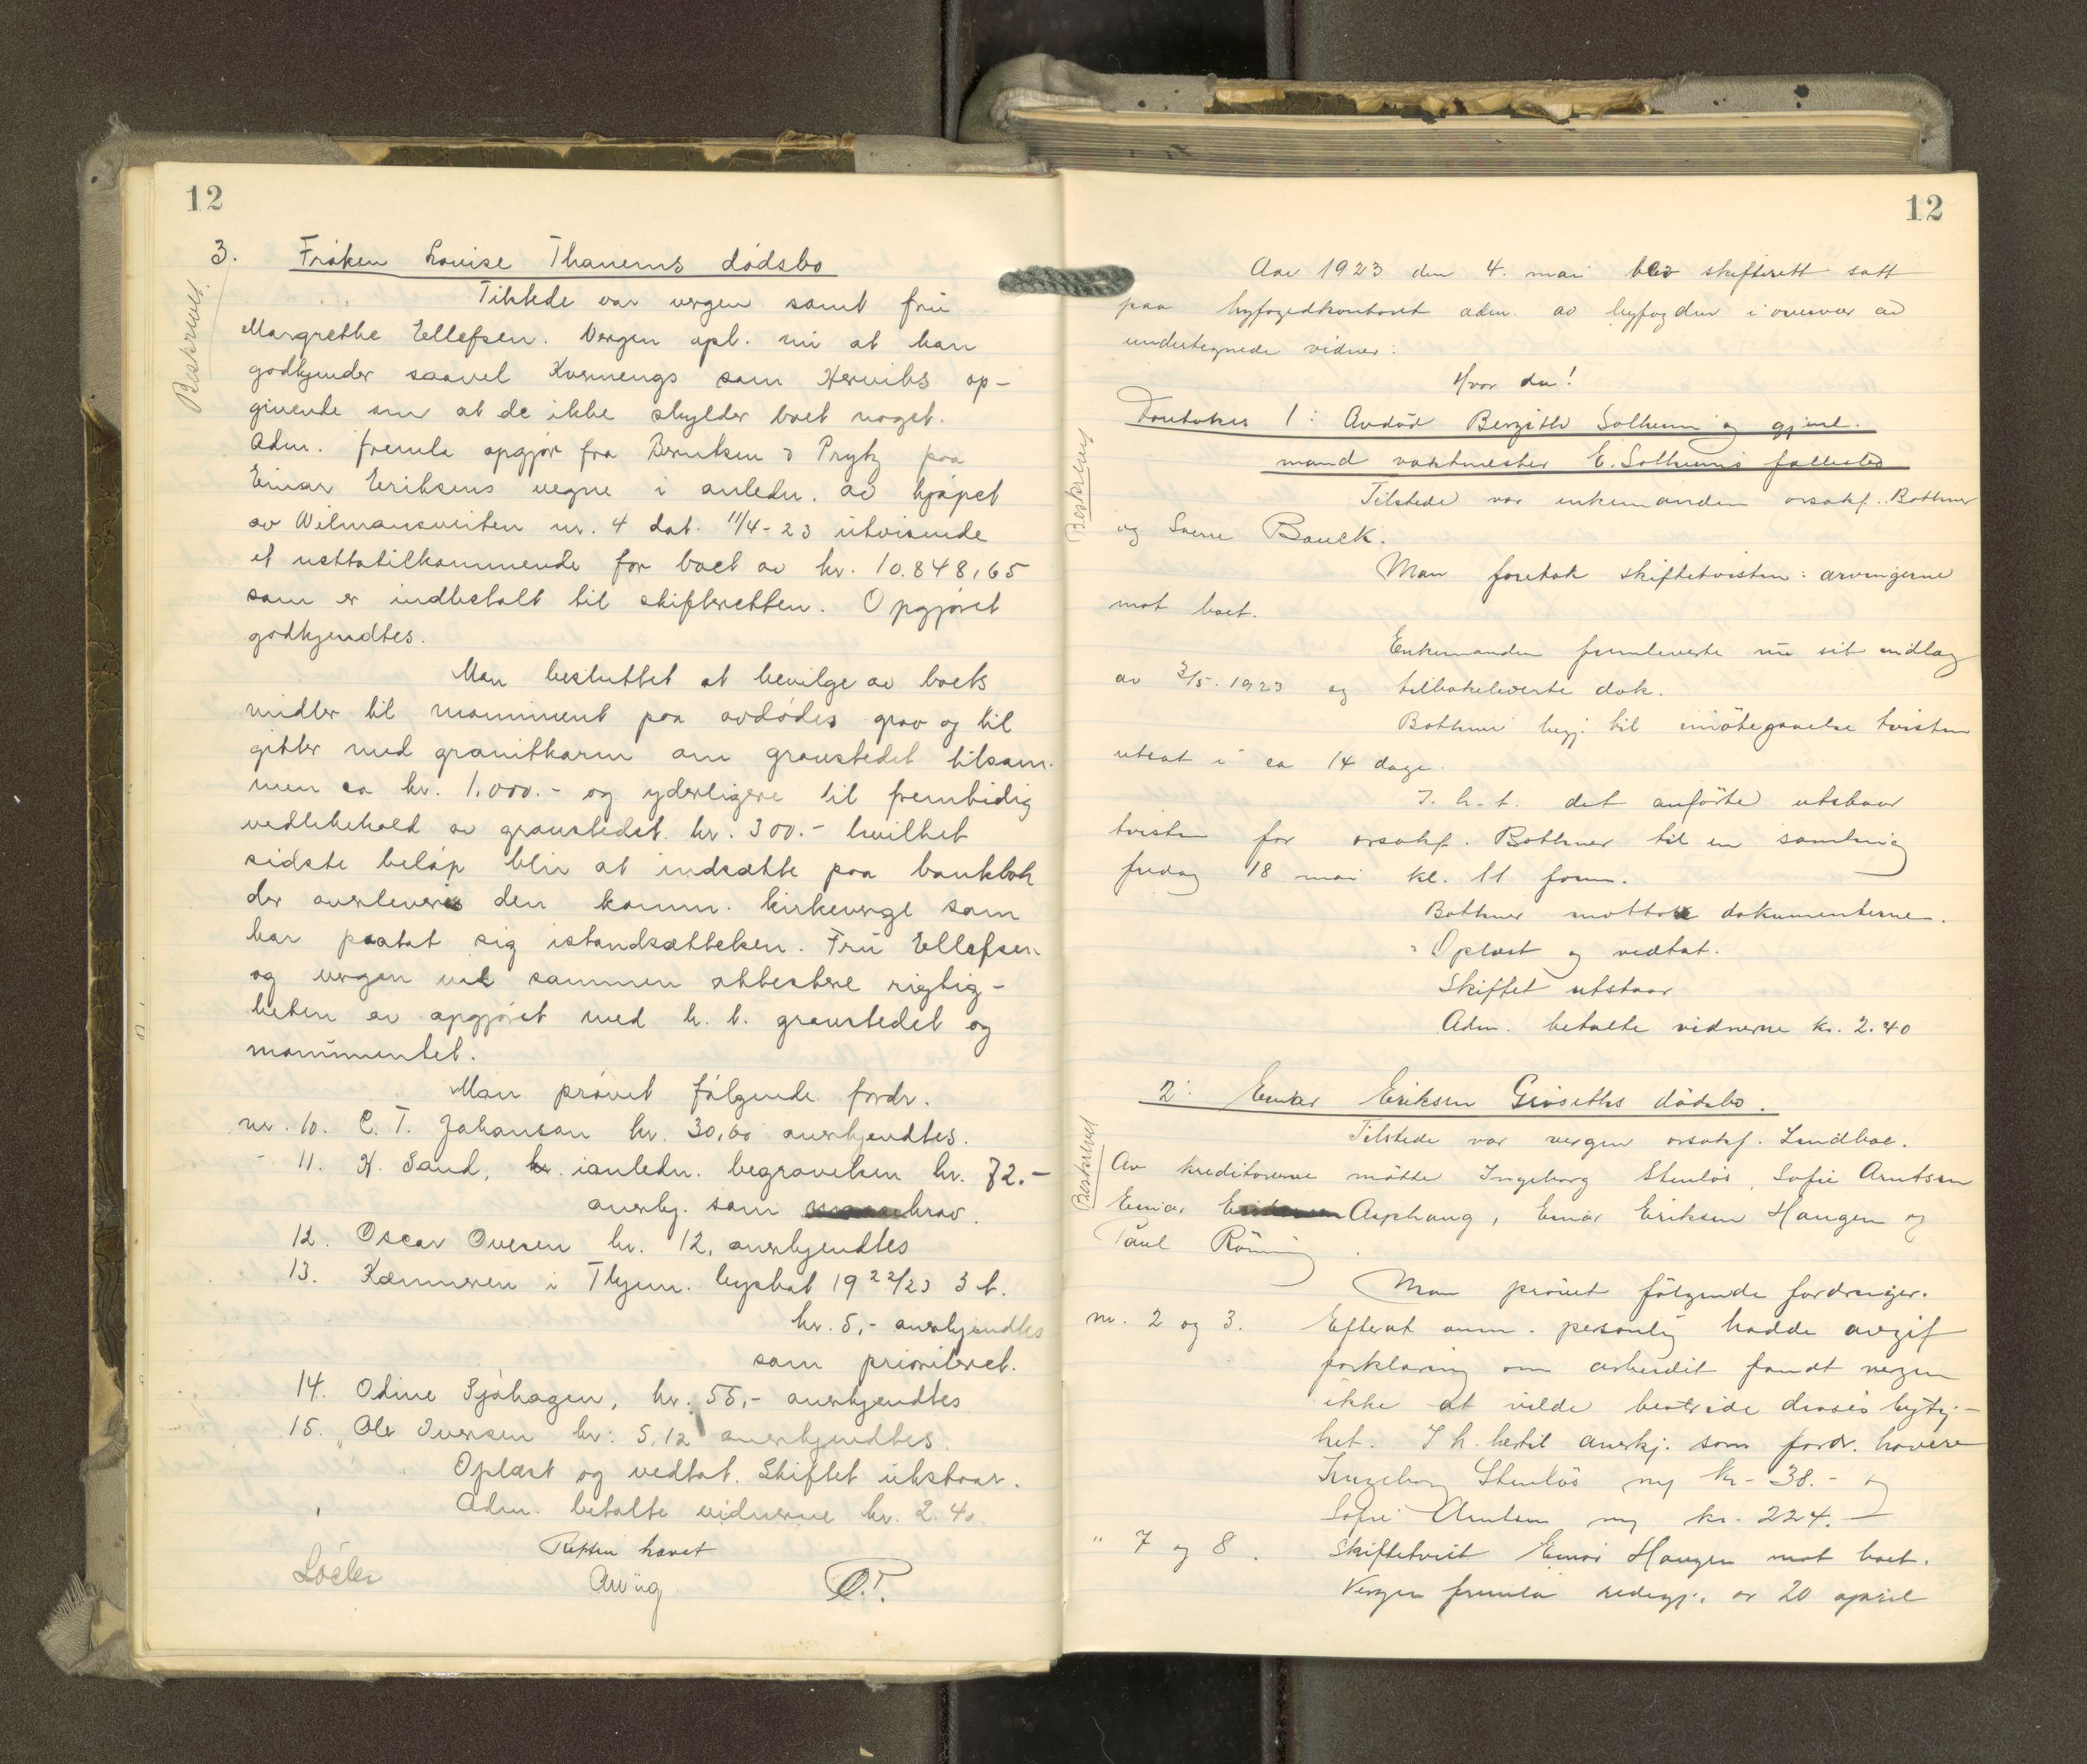 12
3. Frøken Louise Thanems dødsbo
Beskrevet
Tilstede var vergen samt fru
Margrethe Ellefsen. Vergen opl. nu at han
godkjender saavel Kvernengs som Herviks op-
givende om at de ikke skylder boet noget.
Adm. fremla opgjør fra Berntsen & Prytz paa
Einar Eriksens vegne i anledn. av kjøpet
av Wilmansveiten nr. 4 dat. 11/4-23 utvisende
et nettotilkommende for boet av kr. 10.848,65
som er indbetalt til skifteretten. Opgjøret
godkjendtes.
Man besluttet at bevilge av boets
midler til monument paa avdødes grav og til
gitter med granitkarm om gravstedet tilsam-
men ca kr. 1,000.- og yderligere til fremtidig
vedlikehold av gravstedet kr. 300.- hvilket
sidste beløp blir at indsætte paa bankbok
der overleveres den komm. kirkeverge som
har paatat sig istandsættelsen. Fru Ellefsen
og vergen vil sammen attestere rigtig-
heten av opgjøret med h. t. gravstedet og
monumentet.
Man prøvet følgende fordr.
nr. 10. C. T. Johanson kr. 30,60 anerkjendtes.
- 11. H. Sand, i anledn. begravelsen kr. 72.-
anerkj. som krav.
12. Oscar Ovesen kr. 12, anerkjendtes
13. Kæmneren i Thjem. byskat 1922/23 3 t.
kr. 5,- anerkjendtes
som prioritert.
14. Odine Sjøhagen, kr. 55,- anerkjendtes
15. Ole Iversen kr: 5,12 anerkjendtes.
Oplæst og vedtat. Skiftet utstaar.
Adm. betalte vidnerne kr. 2.40.
Retten hævet
12
Aar 1923 den 4. mai blev skifterett satt
paa byfogedkontoret adm. av byfogden i overvær av
undertegnede vidner:
Hvor da!
Foretokes 1: Avdød Bergithe Solheim og gjenl.
mand vaktmester E. Solheims fællesbo
Beskrevet
Tilstede var enkemanden orsakf. Bothner
og Sverre Bauck.
Man foretok skiftetvisten: arvingerne
mot boet.
Enkemanden fremleverte nu sit indlæg
av 3/5. 1923 og tilbakeleverte dok.
Bothner begj. til imøtegaaelse tvisten
utsat i ca 14 dage.
I. h. t. det anførte utstaar
tvisten for orsakf. Bothner til en samling
fredag 18 mai kl. 11 form.
Bothner mottok dokumenterne.
Oplæst og vedtat.
Skiftet utstaar
Adm. betalte vidnerne kr. 2.40
2: Einar Eriksen Gravseths dødsbo.
Beskrevet
Tilstede var vergen orsakf. Lindboe.
Av kreditorerne møtte Ingeborg Stenløs, Sofie Arntsen
Einar Asphaug, Einar Eriksen Haugen og
Paul Rönning.
Man prøvet følgende fordringer.
nr. 2 og 3. Efterat anm. personlig hadde avgit
forklaring om arbeidet fandt vergen
ikke at vilde bestride deres rigtig-
het. I h. hertil anerkj. som fordr. havere
Ingeborg Stenløs ny kr. 38.- og
Sofie Arntsen ny kr. 224.-
" 7 og 8. Skiftetvist Einar Haugen mot boet.
Vergen fremla redegj. av 20 april